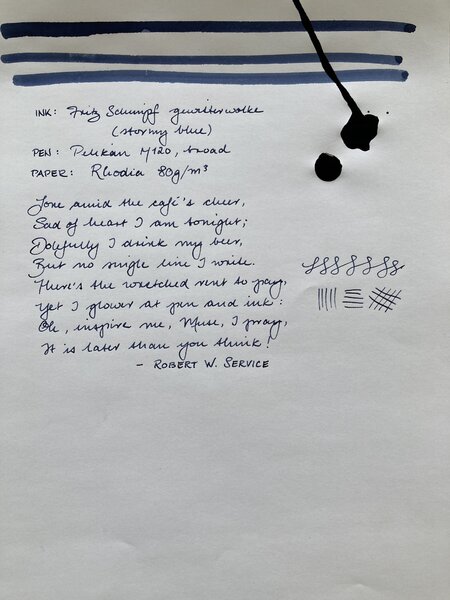 INK: Fritz Schimpf gewitterwolke
(stormy blue)
PEN: Pelikan M120, broad
PAPER: Rhodia 80g/m³
Lone amid the café's cheer,
Sad of heart I am tonight;
Dolefully I drink my beer,
But no single line I write.
There's the wretched rent to pay,
Yet I glower at pen and ink:
Oh, inspire me, Muse, I pray,
It is later than you think!
- ROBERT W. SERVICE